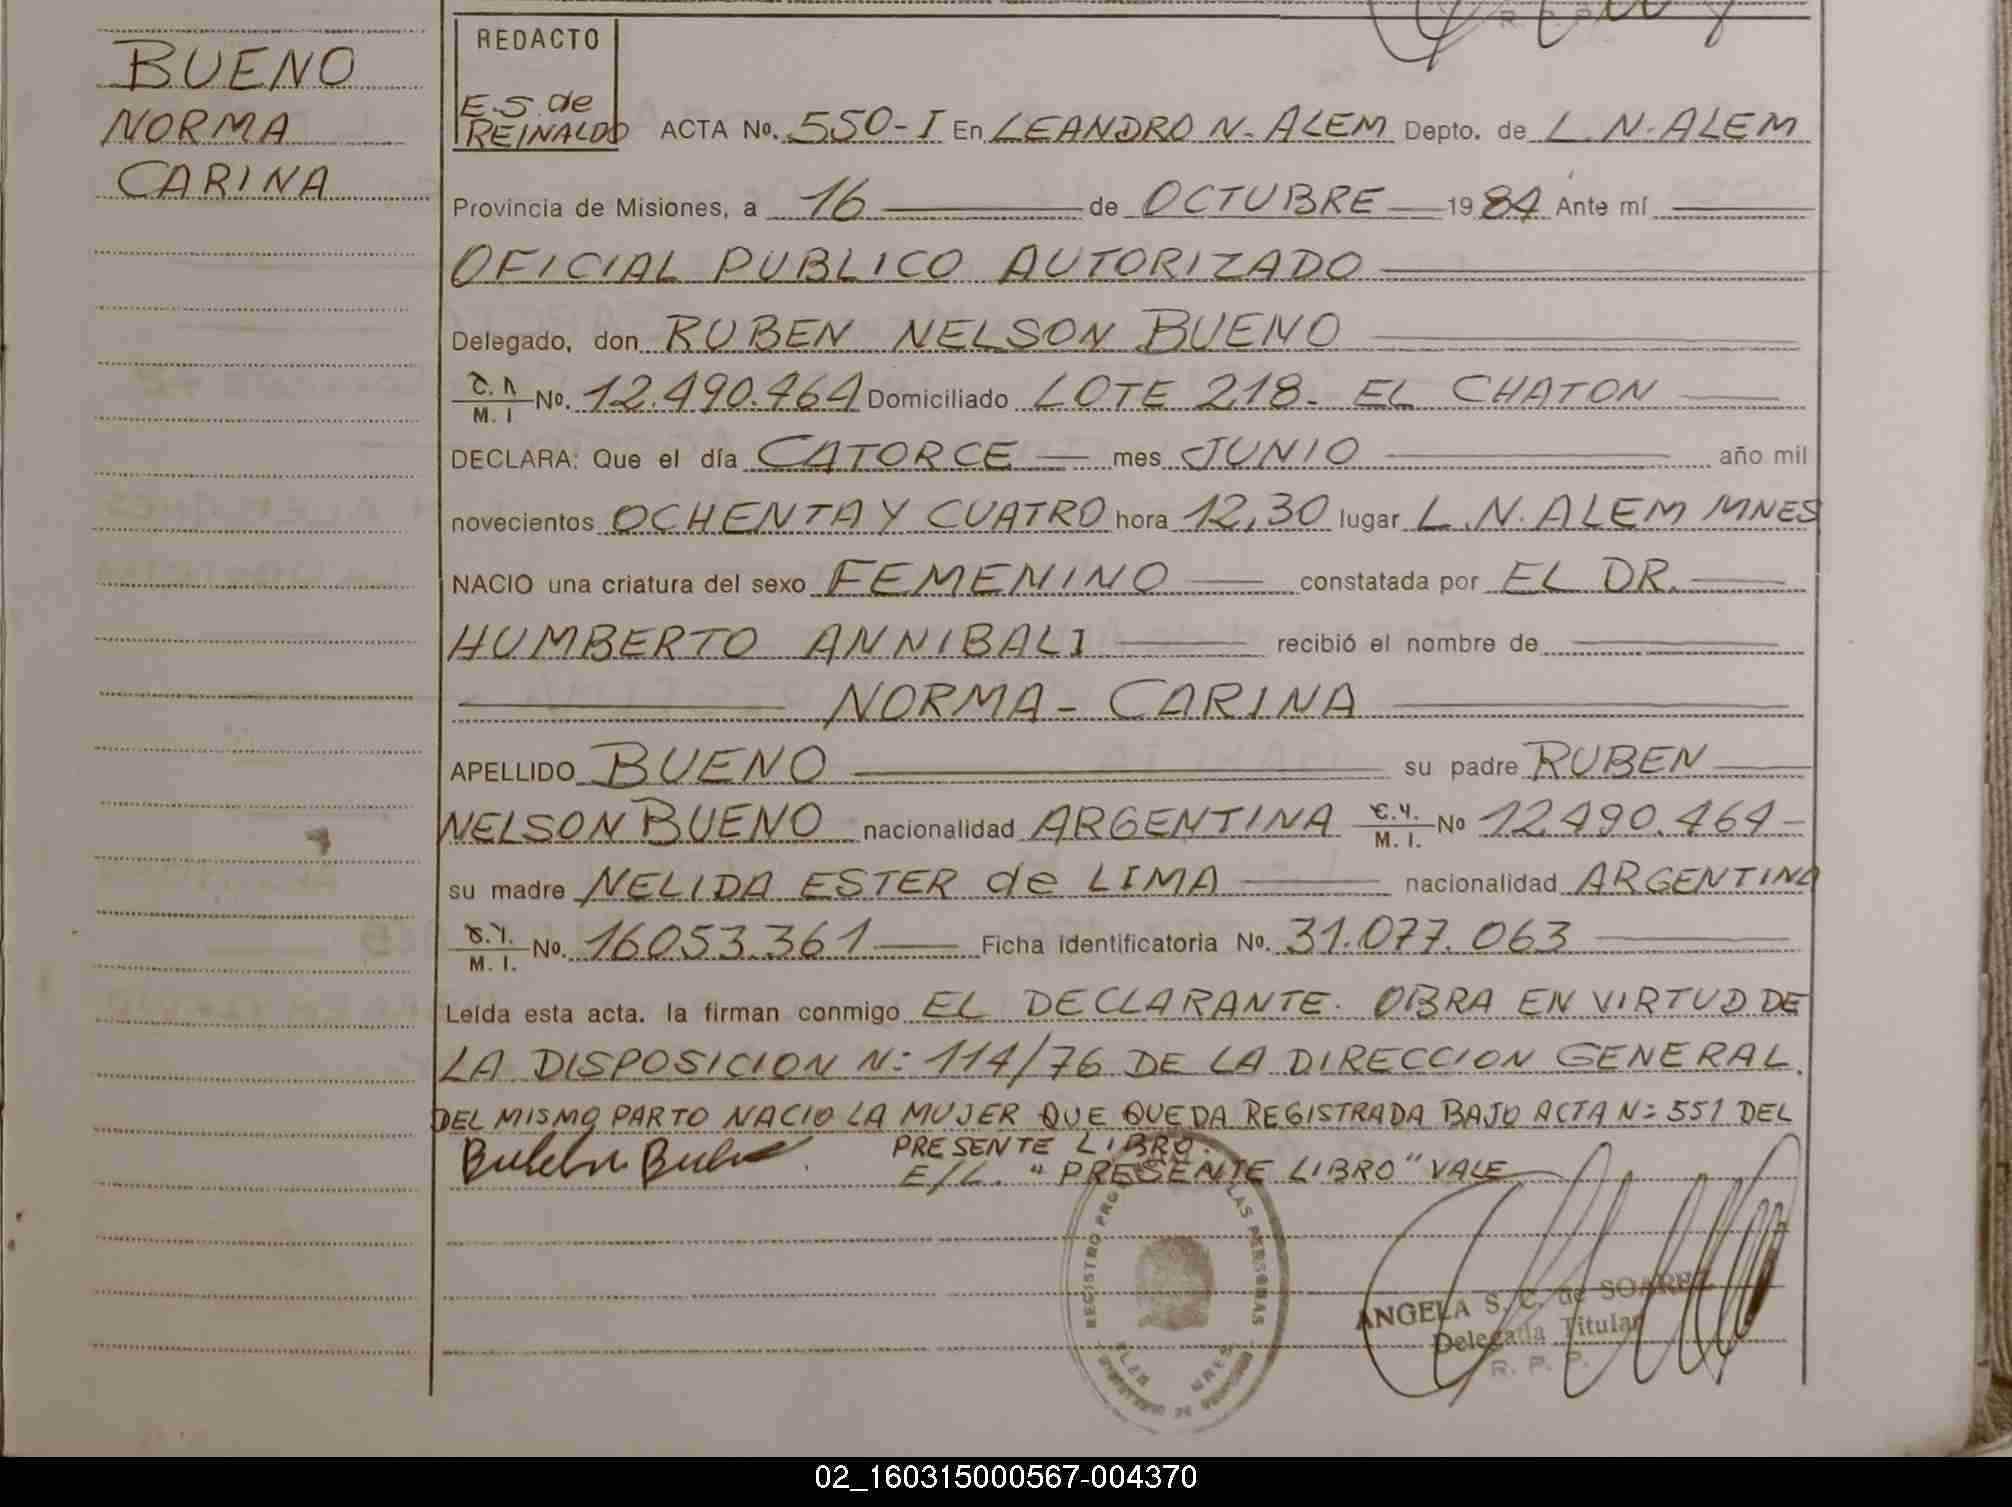 BUENO
NORMA
CARINA
REDACTO
E.S. de
REINALDO
ACTA No. 550-I En LEANDRO N. ALEM Depto. de L. N. ALEM
Provincia de Misiones, a 16 de OCTUBRE 1984 Ante mí
OFICIAL PUBLICO AUTORIZADO
Delegado, don RUBEN NELSON BUENO
M. I No. 12.490.464 Domiciliado LOTE 218. EL CHATON
DECLARA: Que el día CATORCE mes JUNIO año mil
novecientos OCHENTA Y CUATRO hora 12,30 lugar L. N. ALEM MNES
NACIO una criatura del sexo FEMENINO constatada por EL DR.
HUMBERTO ANNIBALI recibió el nombre de
NORMA - CARINA
APELLIDO BUENO su padre RUBEN
NELSON BUENO nacionalidad ARGENTINA M. I. No 12.490.464
su madre NELIDA ESTER de LIMA nacionalidad ARGENTINA
M. I. No. 16053.361 Ficha identificatoria No. 31.077.063
Leída esta acta. la firman conmigo EL DECLARANTE. OBRA EN VIRTUD DE
LA DISPOSICION N: 114/76 DE LA DIRECCION GENERAL.
DEL MISMO PARTO NACIO LA MUJER QUE QUEDA REGISTRADA BAJO ACTA N: 551 DEL
PRESENTE LIBRO.
E/L. "PRESENTE LIBRO" VALE
REGISTRO LAS PERSONAS
ANGELA S. C. de SOAREZ
Delegada Titular
R. P. P.
02_160315000567-004370